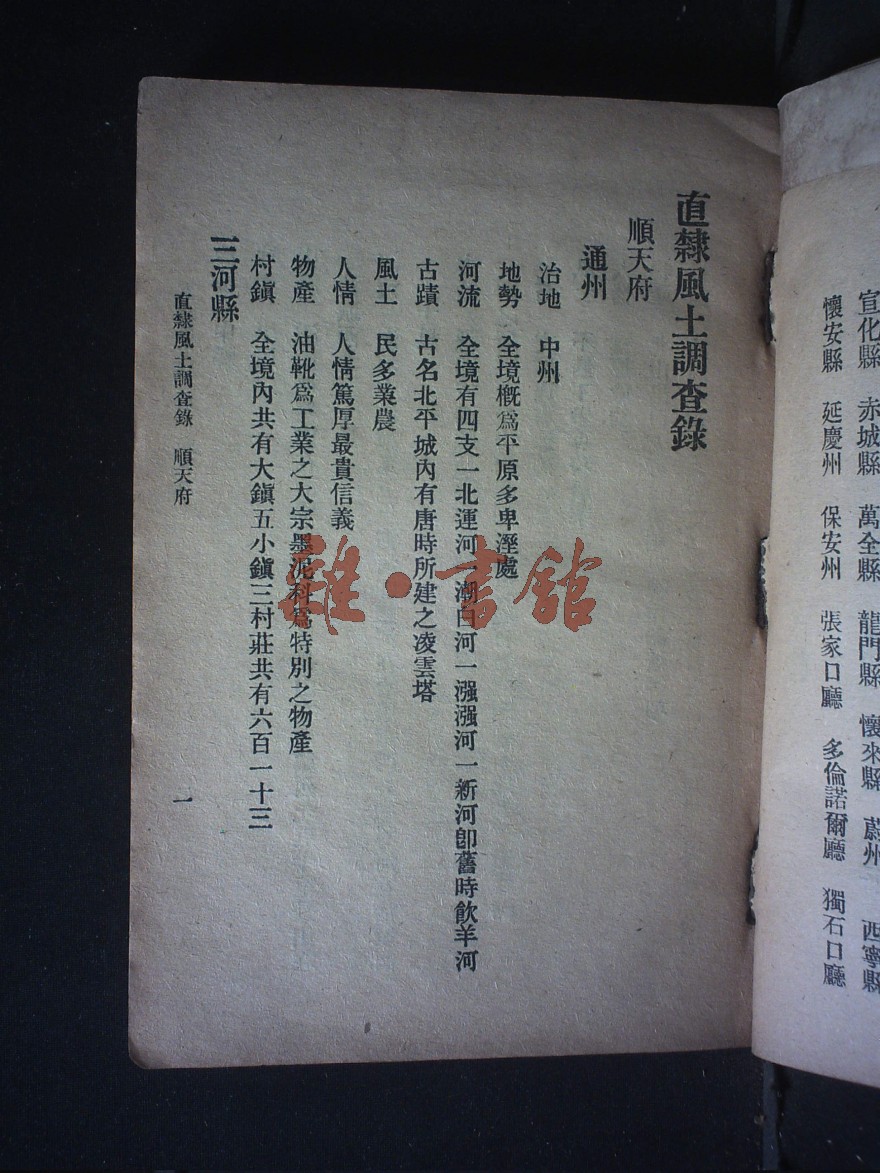 宣化縣 赤城縣 萬全縣 龍門縣 懷來縣 蔚州 西寧縣
懷安縣 延慶州 保安州 張家口廳 多倫諾爾廳 獨石口廳
直隸風土調查錄
順天府
通州
治地 中州
地勢 全境槪爲平原多卑溼處
河流 全境有四支一北運河一潮白河一漒漒河一新河卽舊時飮羊河
古蹟 古名北平城內有唐時所建之凌雲塔
風土 民多業農
人情 人情篤厚最貴信義
物產 油靴爲工業之大宗墨泥科爲特別之物產
村鎭 全境內共有大鎭五小鎭三村莊共有六百一十三
三河縣
直隸風土調查錄 順天府
一
雜·書館